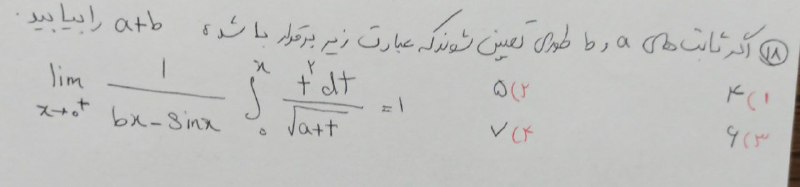 ۱۸ اگر ثابت های a و b طوری تعیین شوند که عبارت زیر برقرار باشد، a+b را بیابید.
lim x→0⁺ 1/(bx - sinx) ∫₀ˣ t²dt/√(a+t) = 1
۱) ۴ ۲) ۵
۳) ۶ ۴) ۷